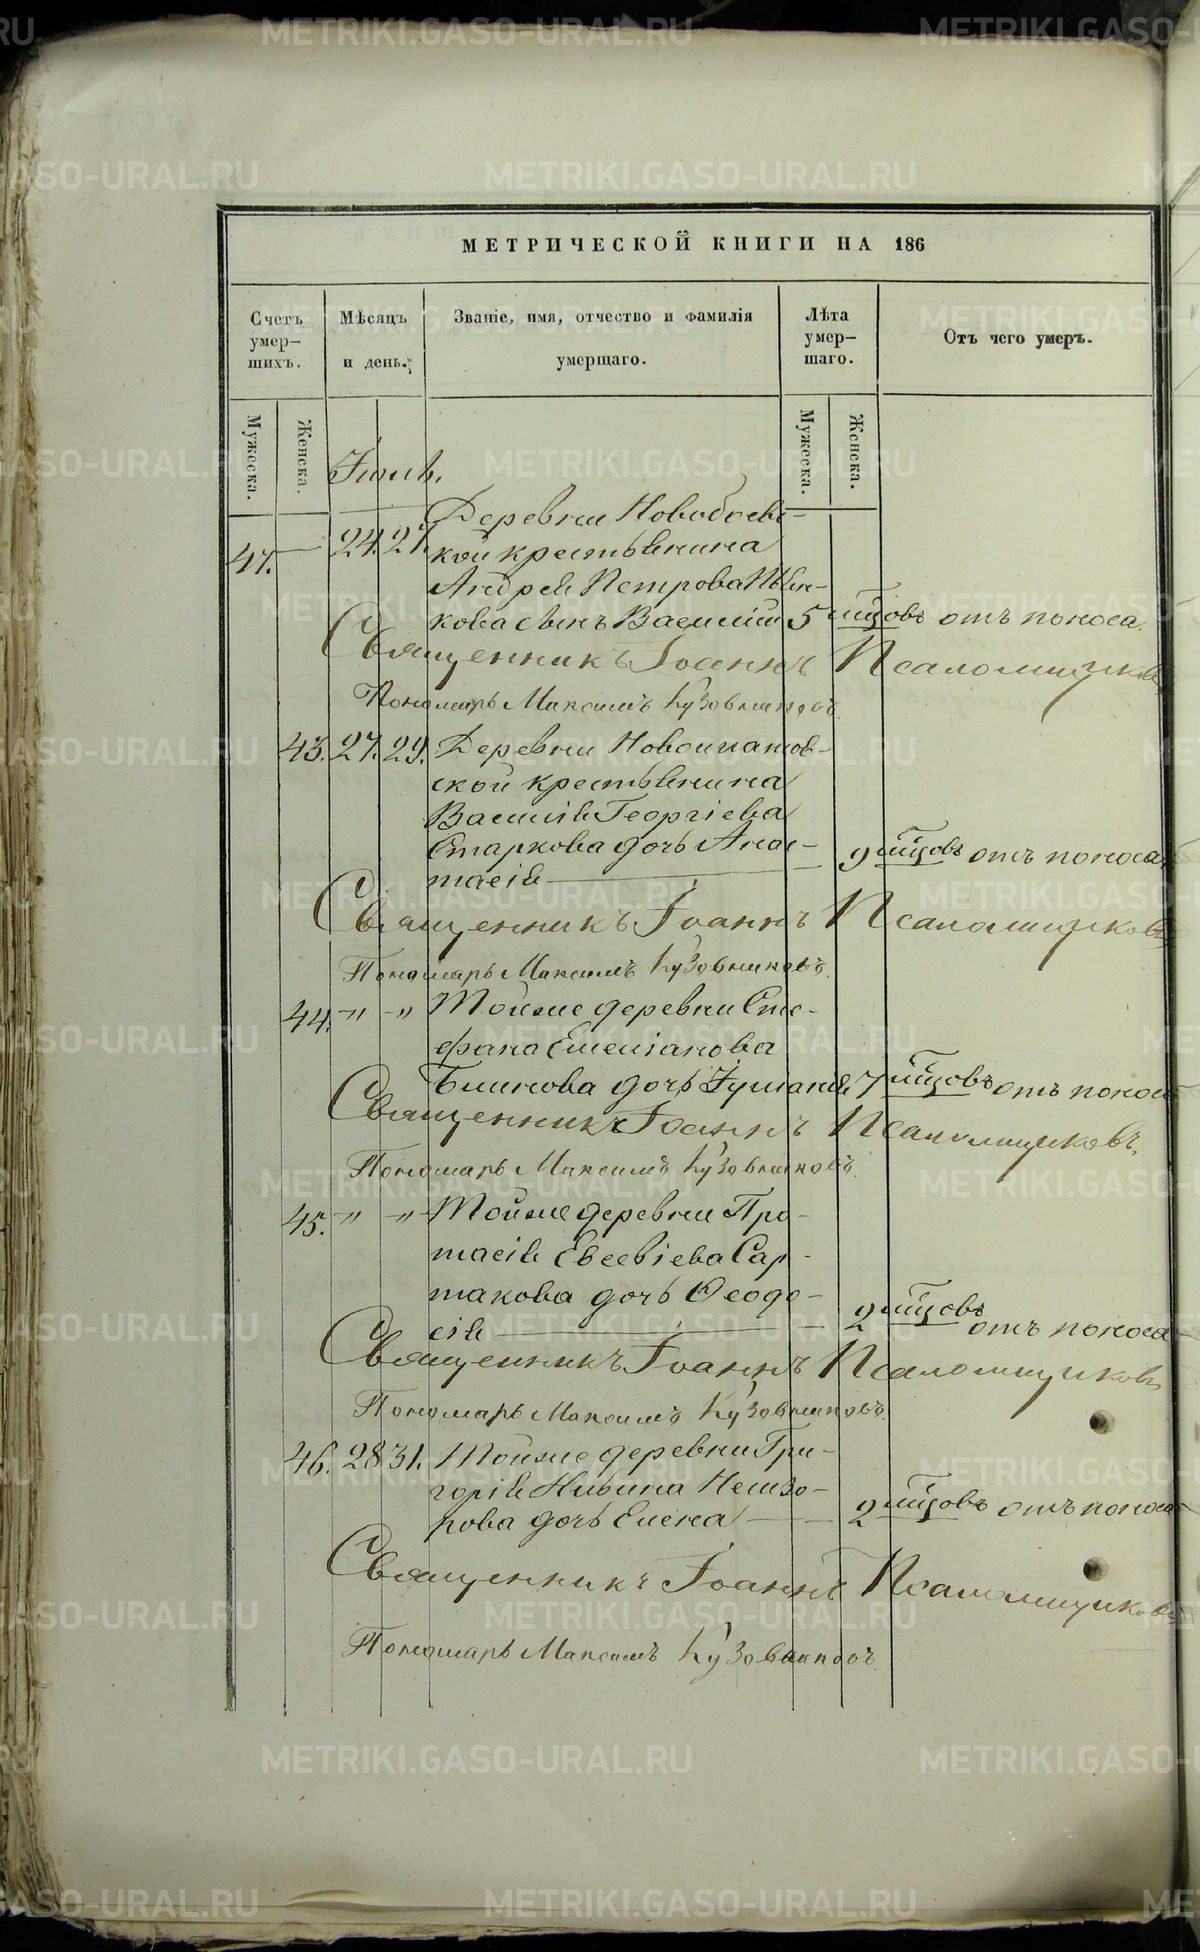 МЕТРИЧЕСКОЙ КНИГИ НА 186
Счетъ умер–шихъ.
Мѣсяцъ и день.
Званіе, имя, отчество и фамилія умершаго.
Лѣта умер–шаго.
Отъ чего умеръ.
Мужеска.
Женска.
Мужеска.
Женска.
Іюль.
Деревни Новобоевс-
47. — 24. 27. кой крестьянина
Андрея Петрова
кова сынъ Василій 5 мѣсцовъ отъ поноса.
Священникъ Іоаннъ Псаломщиковъ
Пономарь Максимъ Кузовниковъ
43. 27. 29. Деревни Новоипатов-
ской крестьянина
Василія Георгіева
Старкова дочь Анас-
тасія — 9 мѣсцовъ отъ поноса
Священникъ Іоаннъ Псаломщиковъ
Пономарь Максимъ Кузовниковъ.
44. -"- -"- Тойже деревни Сте-
фана Емеліанова
Блинова дочь Іуліанія 7 мѣсцовъ отъ поноса
Священникъ Іоаннъ Псаломщиковъ.
Пономарь Максимъ Кузовниковъ.
45. -"- -"- Тойже деревни Про-
тасія Евсевіева Сар-
такова дочь Ѳеодо-
сія — 2 мѣсцовъ отъ поноса
Священникъ Іоаннъ Псаломщиковъ
Пономарь Максимъ Кузовниковъ.
46. 28 31. Тойже деревни Гри-
горія
кова дочь Елена — 2 мѣсцовъ отъ поноса
Священникъ Іоаннъ Псаломщиковъ
Пономарь Максимъ Кузовниковъ.
METRIKI.GASO-URAL.RU